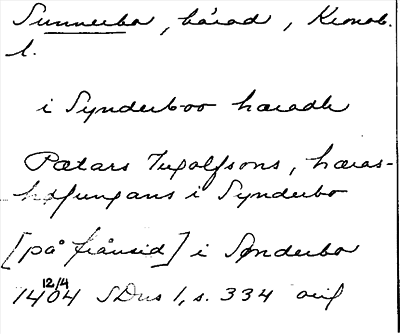 Sunnerbo, härad, Kronob.
l.
i Synderboo hæradh
Pætars Ingolfsons, hæras-
höfþungans i Synderbo
[på frånsid] i Sønderbo
12/4
1404 SDns 1, s. 334 orig